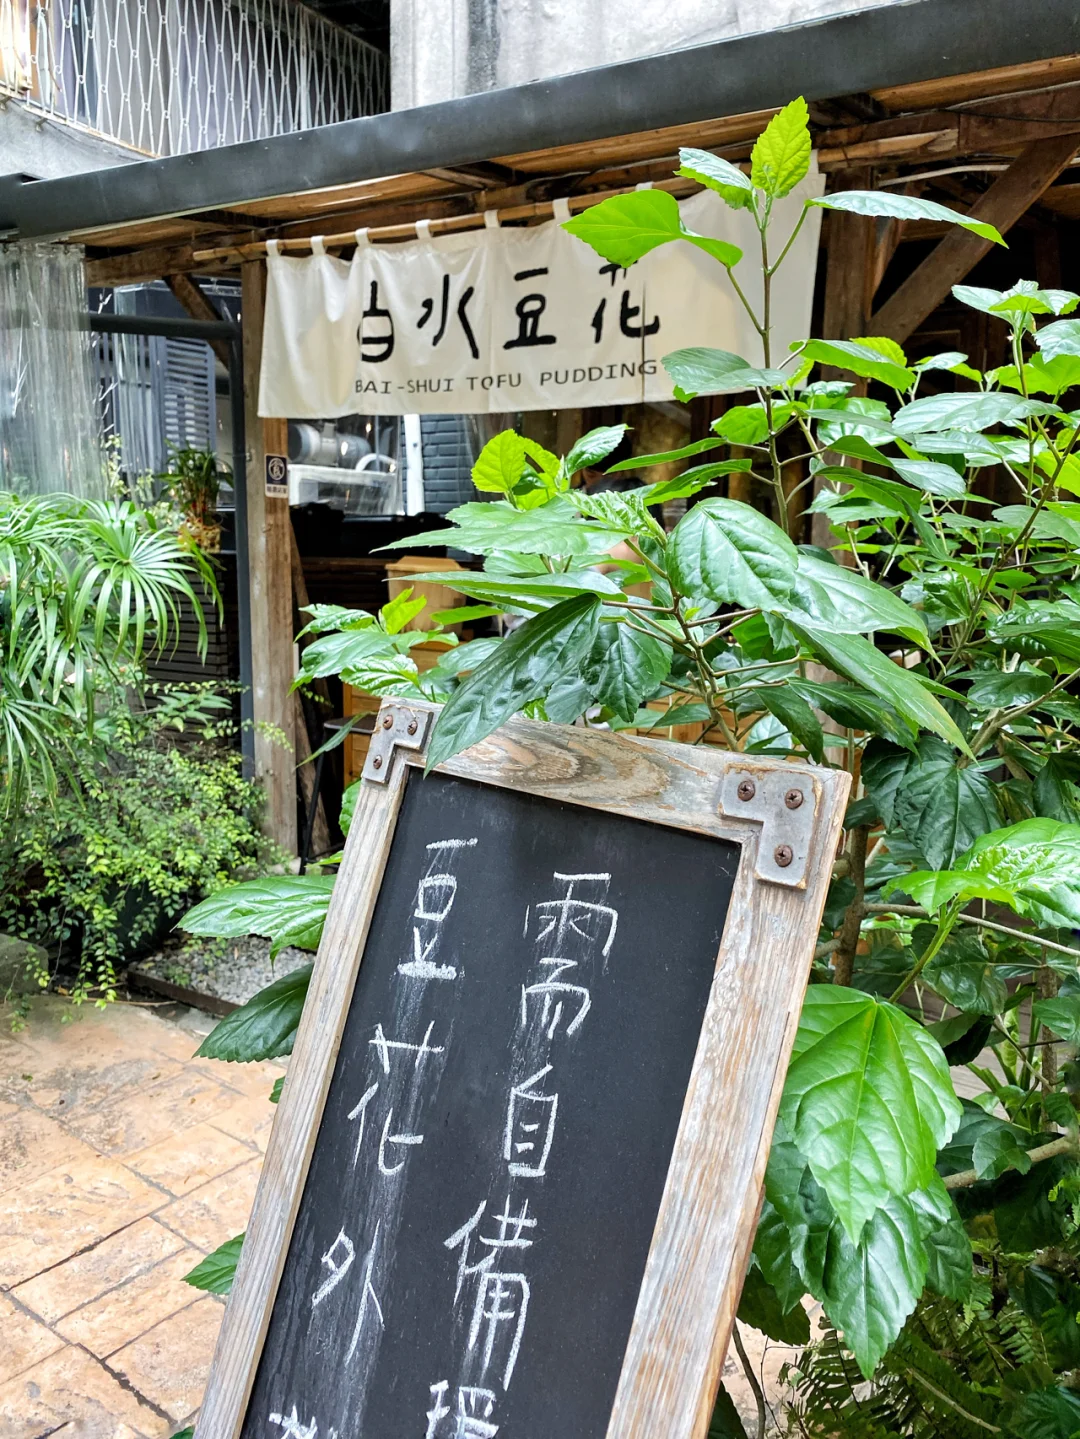 白水豆花
BAI-SHUI TOFU PUDDING
豆花外
需自備環